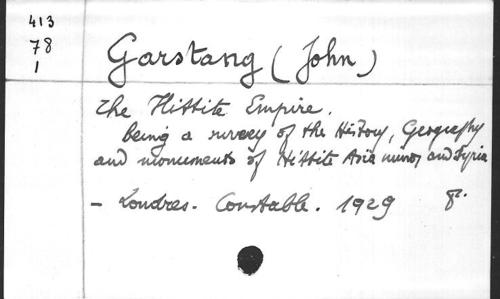 413
78
1
Garstang (John)
The Hittite Empire.
being a survey of the History, Geography
and monuments of Hittite Asia minor and Syria
- Londres. Constable. 1929 8º.